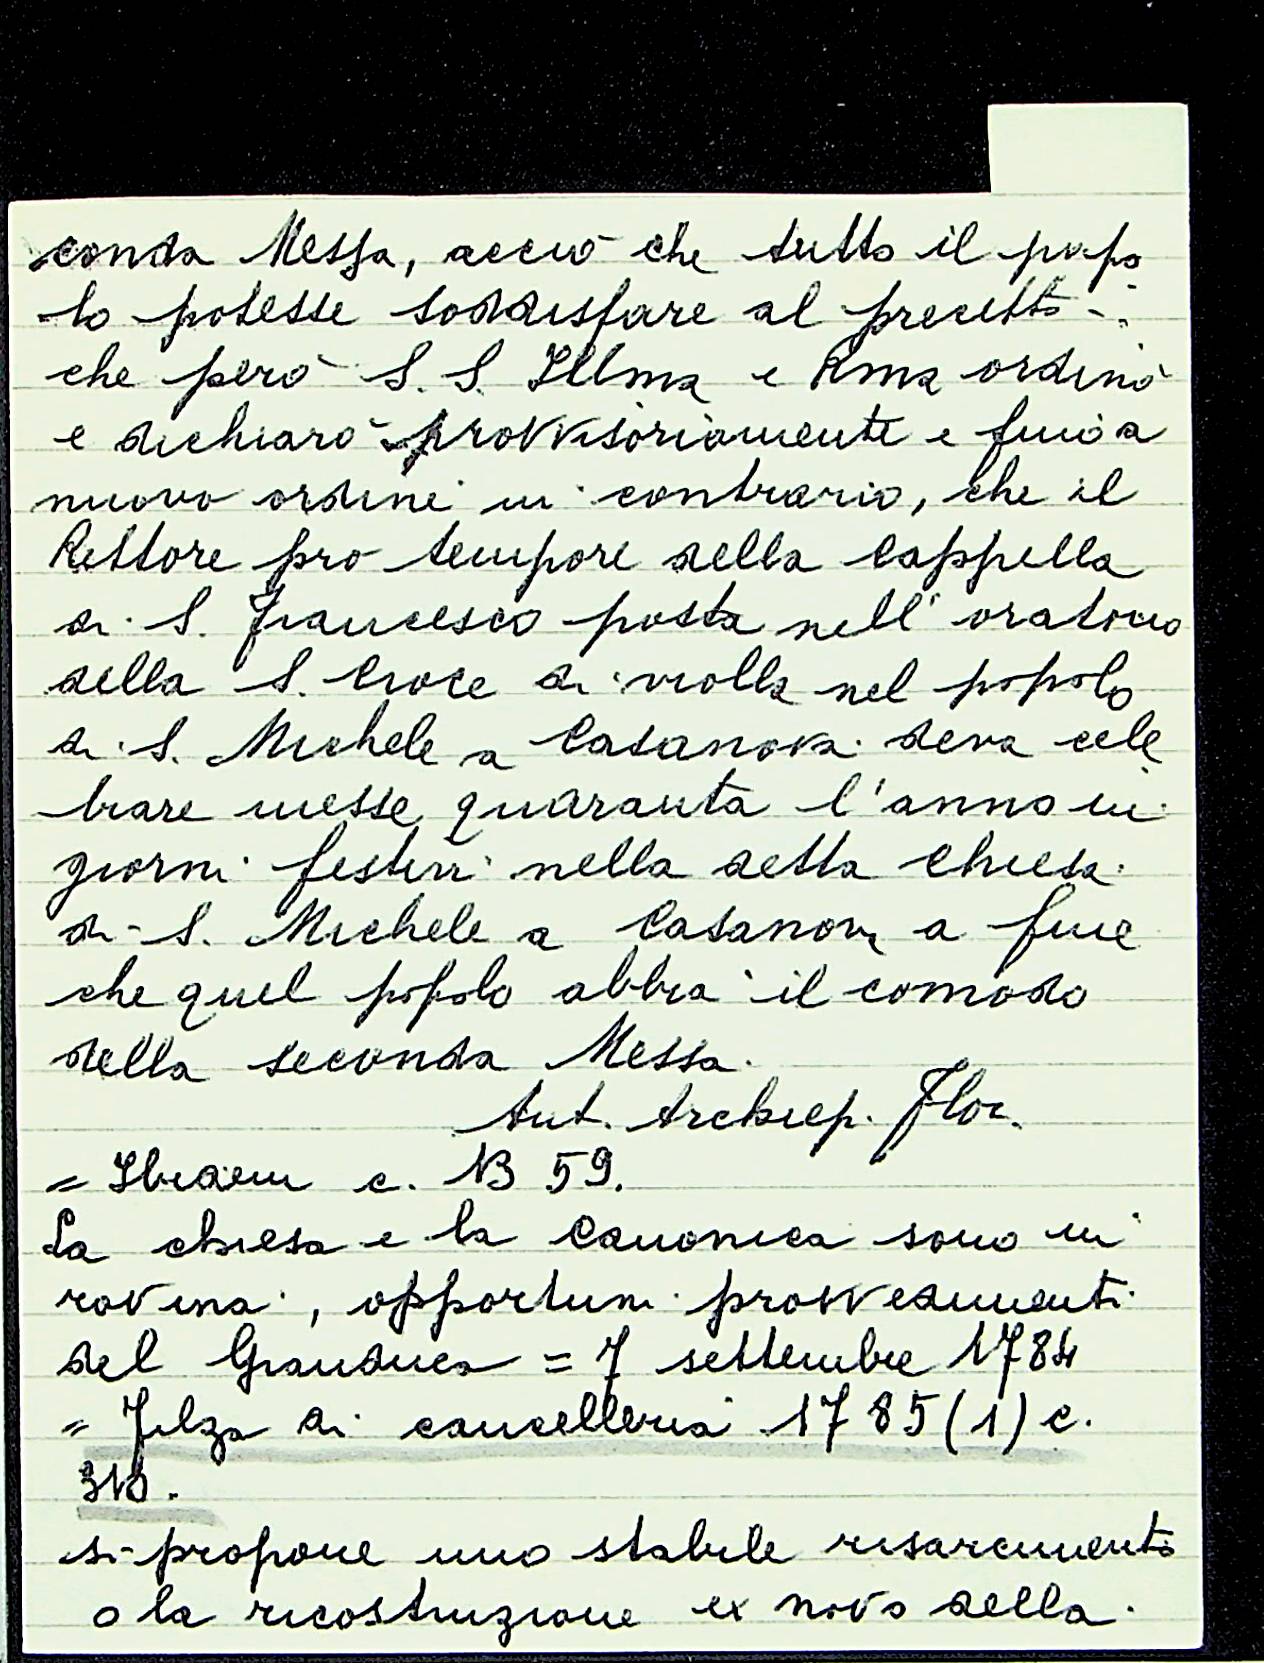 conda Messa, acciò che tutto il popo
lo potesse soddisfare al precetto -
che però S. S. Illma e Rma ordinò
e dichiarò provvisoriamente e fino a
nuovo ordine in contrario, che il
Rettore pro tempore della Cappella
di S. Francesco posta nell'oratorio
della S. Croce di nel popolo
di S. Michele a Casanova deva cele
brare messe quaranta l'anno in
giorni festivi nella detta Chiesa
di S. Michele a Casanova a fine
che quel popolo abbia il comodo
della seconda Messa.
Ant. Archiep. Flor.
= Ibidem c. 59.
La chiesa e la Canonica sono in
rovina, opportuni provvedimenti
del Granduca = 7 settembre 1784
= Filza di cancelleria 1785 (1) c.
si propone uno stabile risarcimento
o la ricostruzione ex novo della